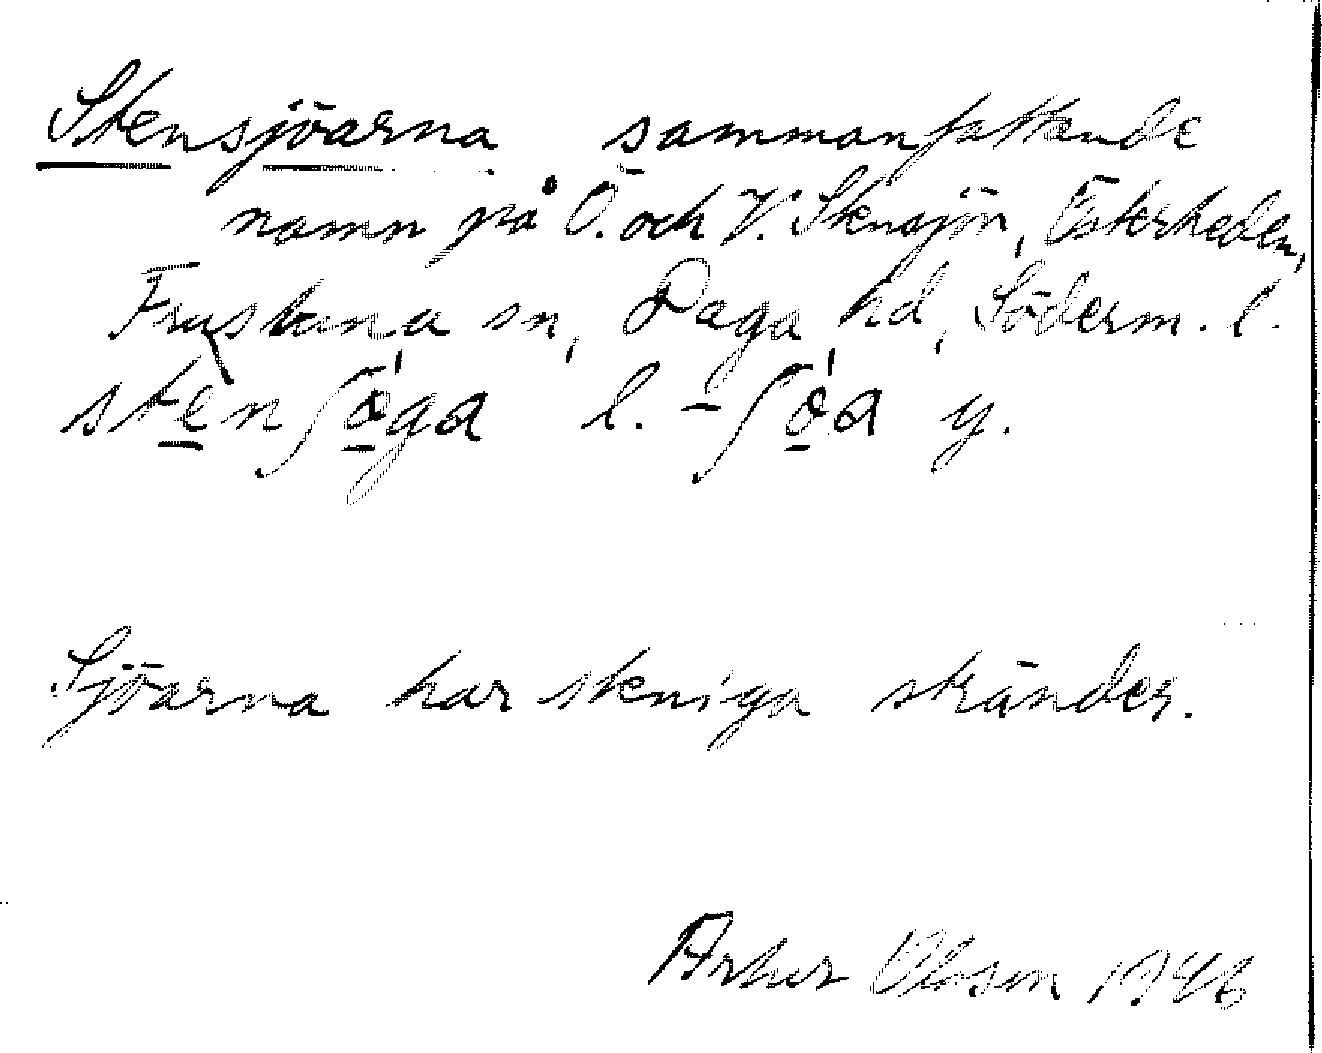 Stensjöarna sammanfattande
namn på Ö. och V. Stensjön, Österheden,
Frustuna sn, Daga hd, Söderm. l.
stenʃö́ga l. -ʃö́a y.
Sjöarna har steniga stränder.
Artur Olsson 1946